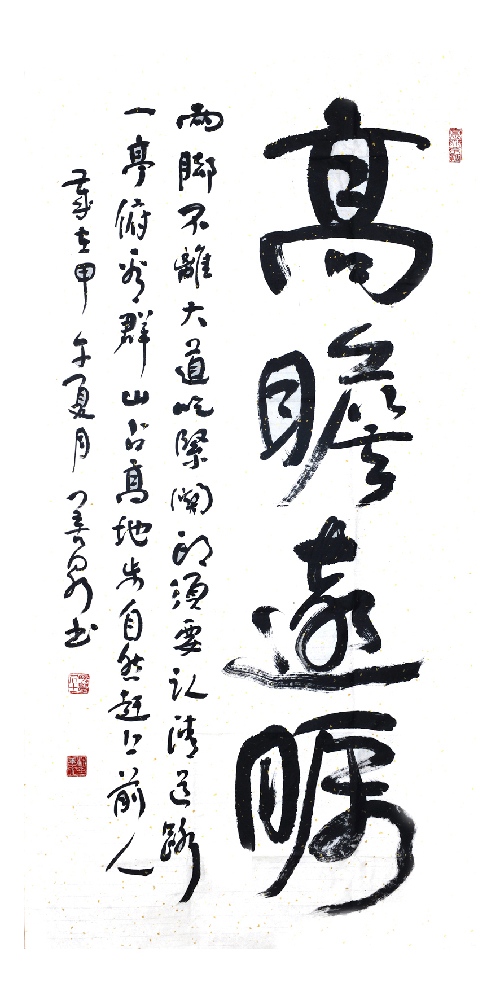 高瞻遠矚
兩脚不離大道吃緊關頭須要認清道路
一亭俯看群山占高地步自然赶上前人
歲在甲午夏月善泉书